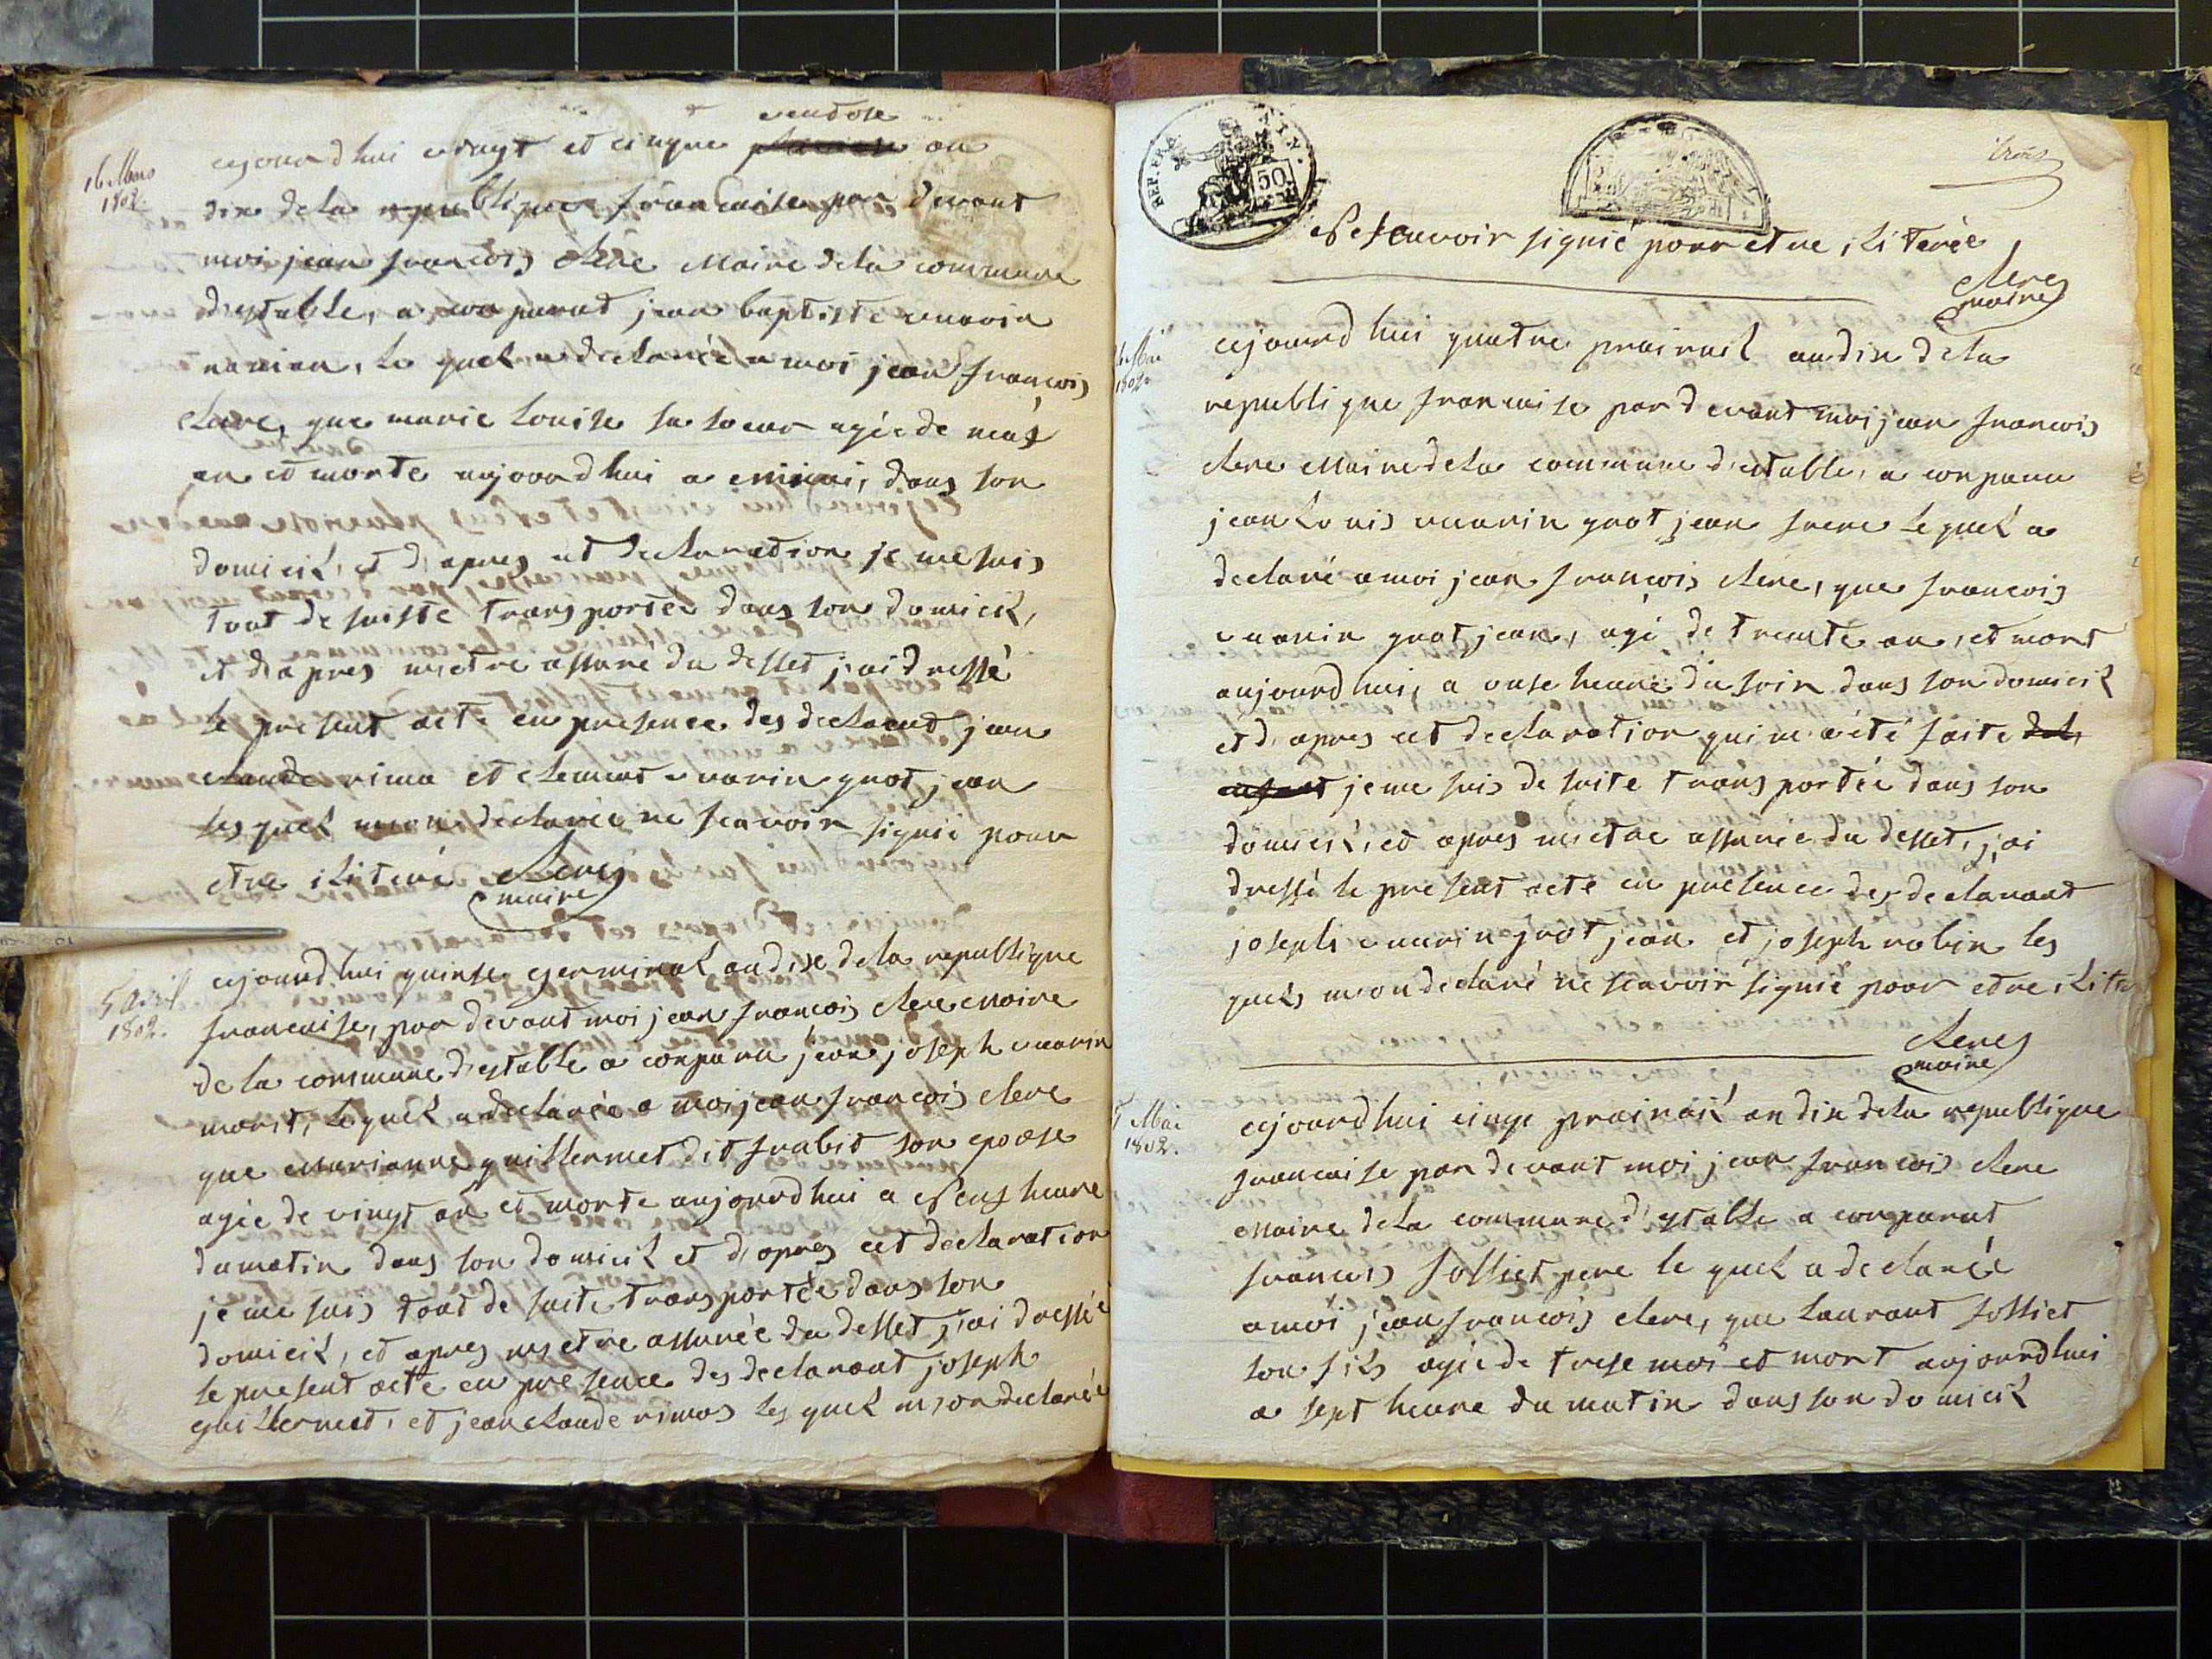 vendose
16 Mars
1802.
cejourd hui vingt et cinque an
dix de la republique francaise par devant
moi jean francois clere Maire de la commune
d'etable, a conparut jean baptiste marin
narian, le quel a declarée a moi jean francois
clere, que marie louise sa soeur agée de neuf
an et morte aujourd hui a miniui, dans son
domicil, et d'apres cet declaration je me suis
tout de suiste transportée dans son domicil,
et d'apres m'etre assure du desset j'ai dressé
le present acte en presence des declarent jean
claude rima et clemant marin grot jean
les quel m'on declarée ne scavoir signié pour
etre iliteré clere
maire
5 Avril
1802.
cejourd hui quinse germinal an dix de la republique
francaise, par devant moi jean francois clere maire
de la commune d'etable a conparu jean joseph marin
morit, le quel a declarée a moi jean francois clere
que Marianne guillermet dit frabit son epouse
agée de vingt an et morte aujourd hui a neuf heure
du matin dans son domicil et d'apres cet declaration
je me suis tout de suite transportée dans son
domicil, et apres m'etre assurée du desset j'ai dressée
le present acte en presence des declarant joseph
guillermet, et jean claude rimos les quel m'on declarée
REP. FRA.
50
trois
ne scavoir signié pour etre iliterée
clere
maire
Mai
1802
cejourd hui quatre prairial an dix de la
republique francaise par devant moi jean francois
clere Maire de la commune d'etable, a conparu
jean louis marin grot jean frere le quel a
declaré a moi jean francois clere, que francois
marin grot jean, agé de trente an, et mort
aujourd hui, a onse heure du soir dans son domicil
et d'apres cet declaration qui m'a été faite
je me suis de suite transportée dans son
domicil, et apres m'etre assurée du desset, j'ai
dressé le present acte en presence des declarant
joseph marin grot jean et joseph robin les
quels m'on declaré ne scavoir signié pour etre ilite
clere
maire
5 Mai
1802.
cejourd hui cinqe prairial an dix de la republique
francaise par devant moi jean francois clere
Maire de la commune d'etable a conparut
francois solliet pere le quel a declarée
a moi jean francois clere, que laurant solliet
son fils agée de trese moi et mort aujourd hui
a sept heure du matin dans son domicil